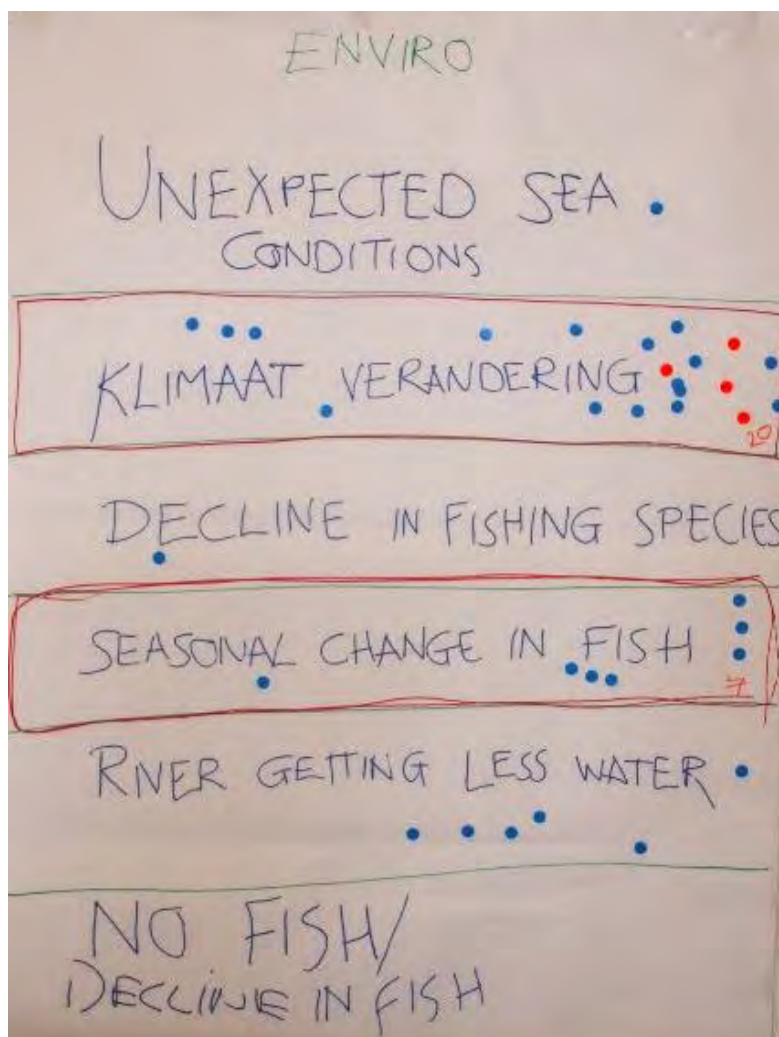 ENVIRO
UNEXPECTED SEA
CONDITIONS
KLIMAAT VERANDERING
20
DECLINE IN FISHING SPECIES
SEASONAL CHANGE IN FISH
7
RIVER GETTING LESS WATER
NO FISH/
DECLINE IN FISH